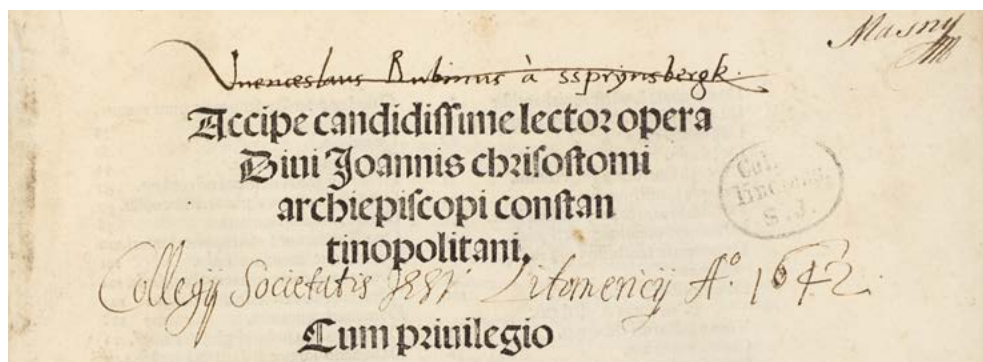 Masny
Vuenceslaus Rubinus à ssprynsbergk.
Accipe candidiſſime lectoꝛ opera
Diui Joannis chꝛiſoſtomi
archiepiſcopi conſtan
tinopolitani.
Col.
S. J.
Collegij Societatis Jesu Litomericij Aº. 1642.
Cum pꝛiuilegio